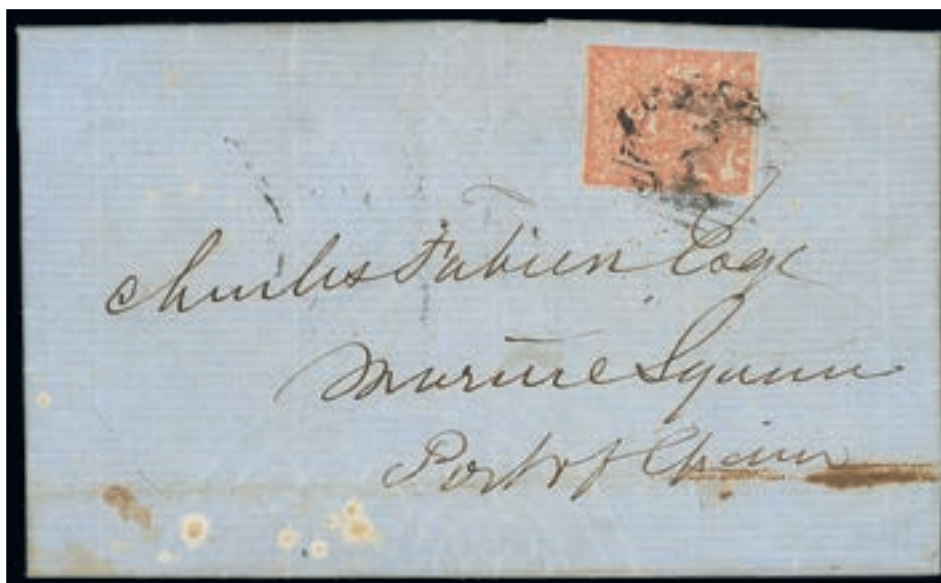 Charles Fabien Esqe
Marine Square
Port of Spain